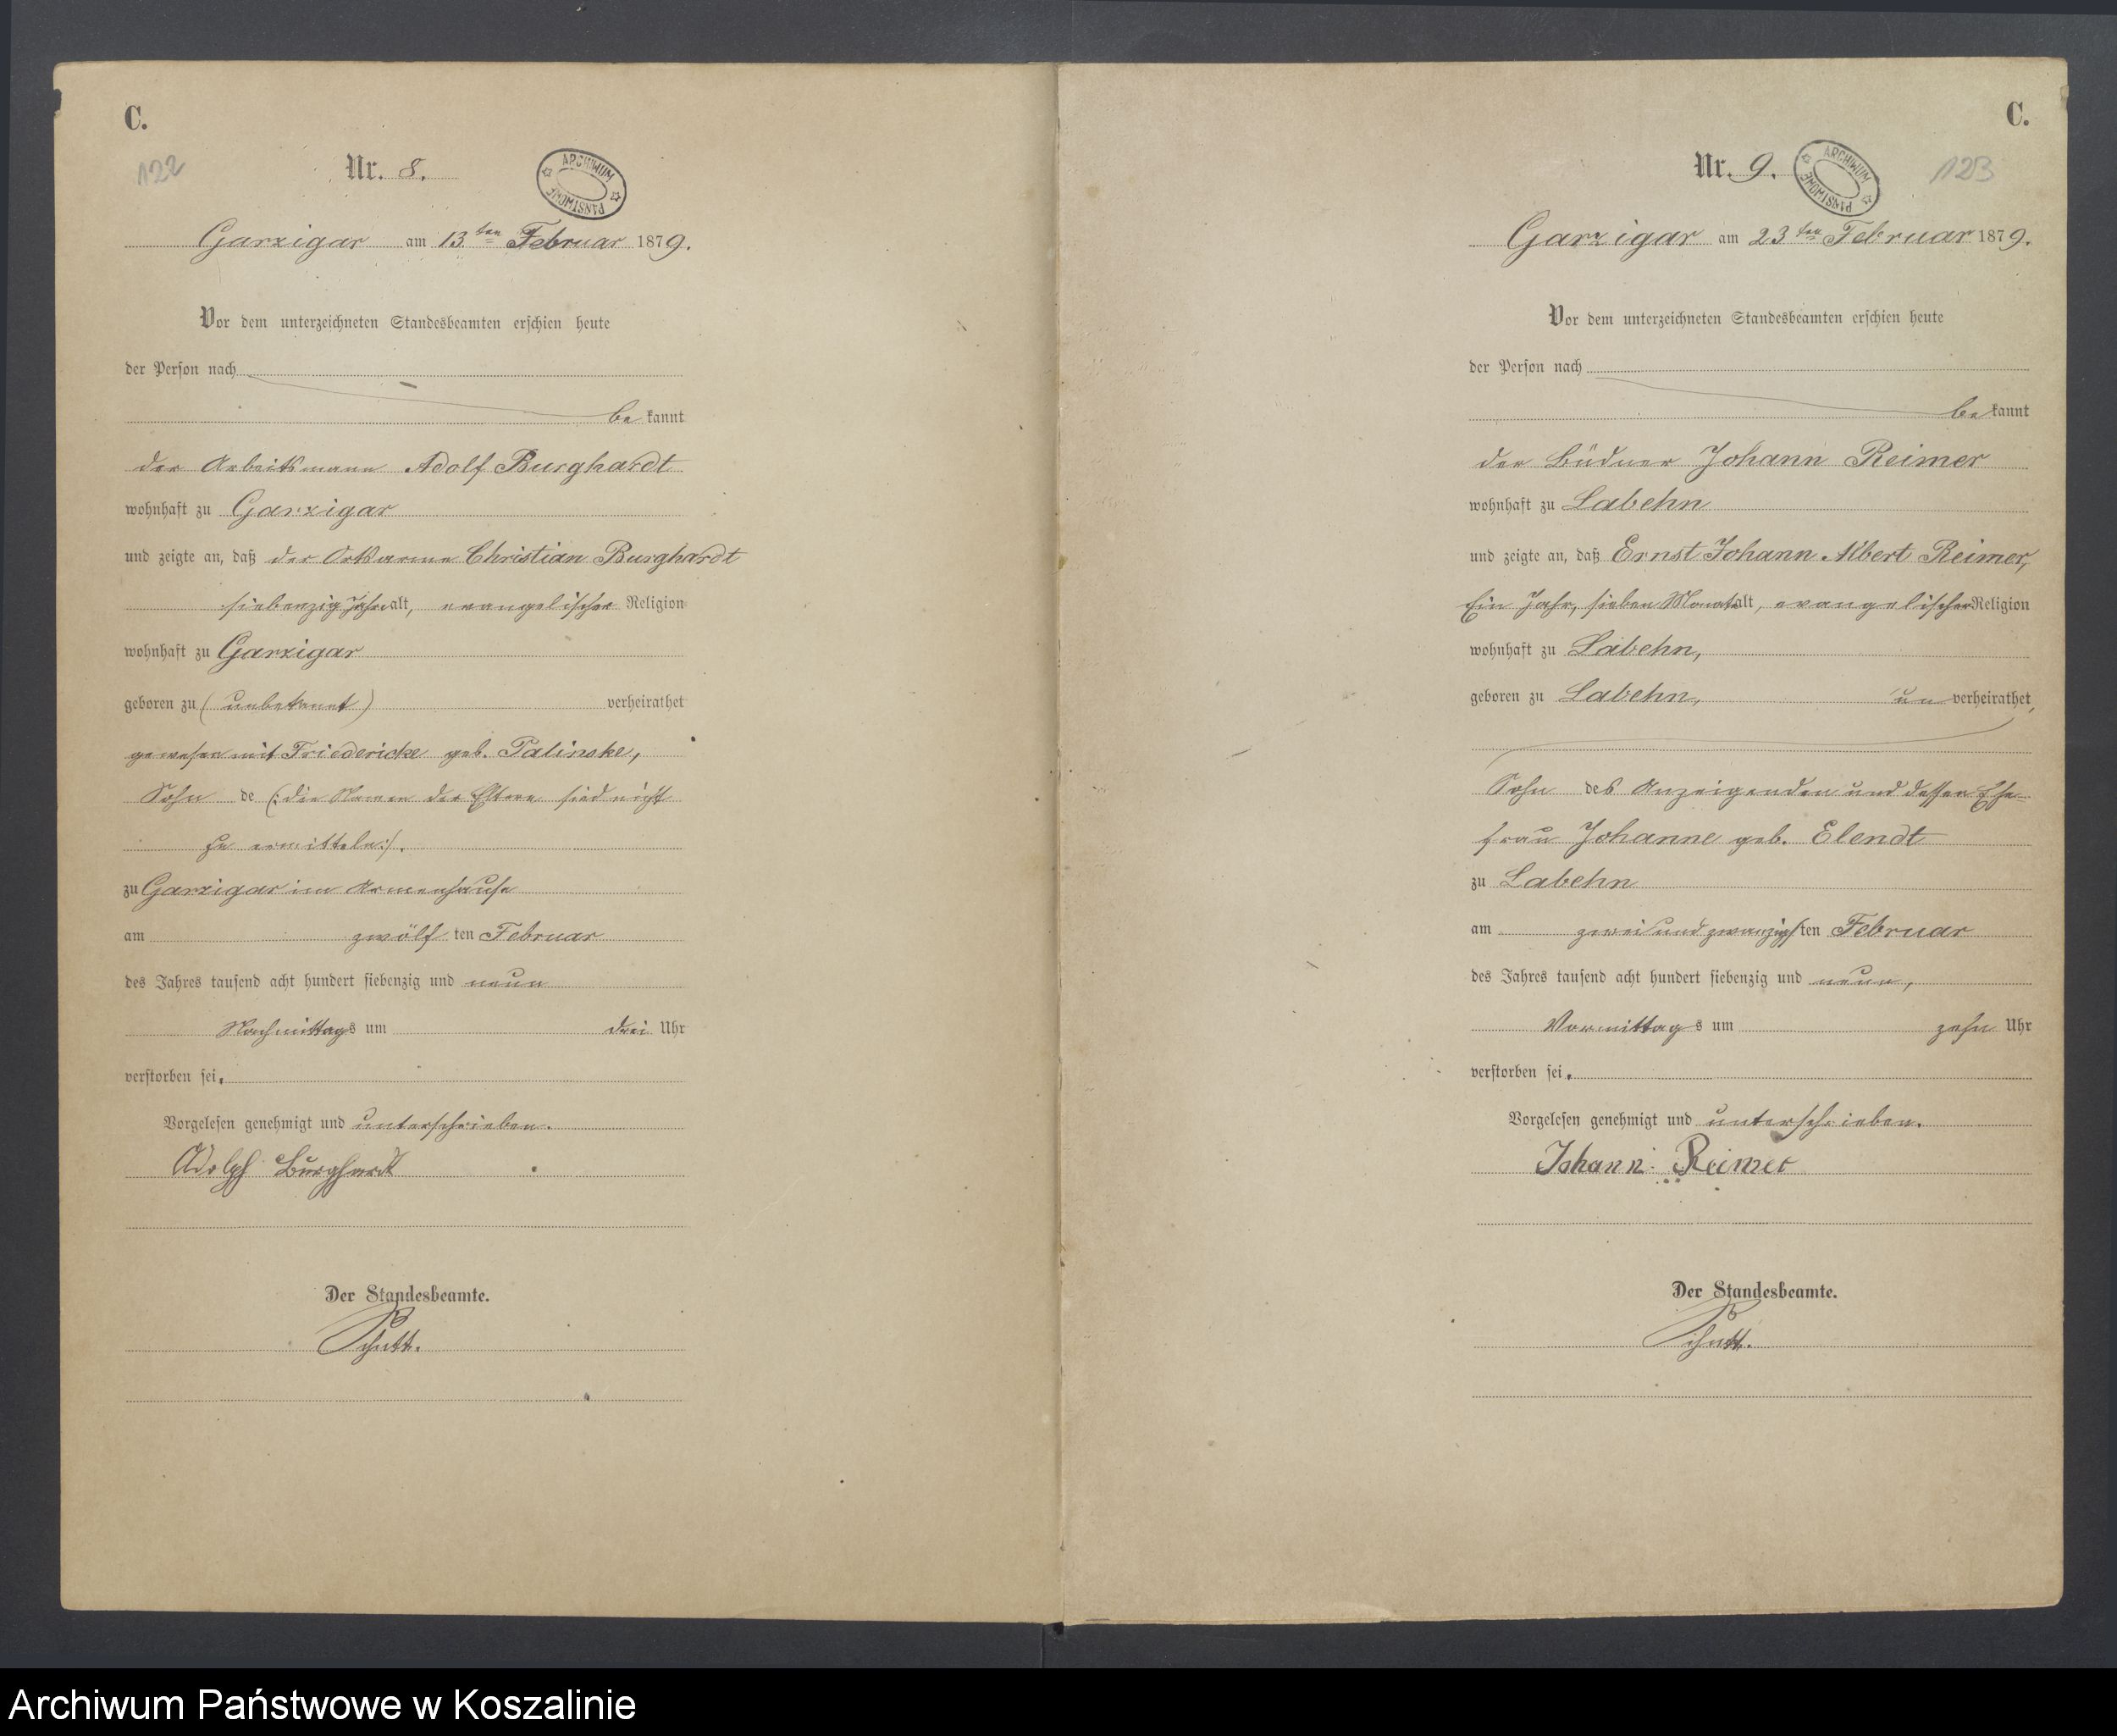 C.
122
Nr. 8.
ARCHIWUM PAŃSTWOWE
Garzigar am 13ten Februar 1879.
Vor dem unterzeichneten Standesbeamten erschien heute
der Person nach
be kannt
der Arbeitsmann Adolf Burghardt
wohnhaft zu Garzigar
und zeigte an, daß der Ortsarme Christian Burghardt
siebenzig Jahre alt, evangelischer Religion
wohnhaft zu Garzigar
geboren zu (unbekannt) verheirathet
gewesen mit Friedericke geb. Palinske,
Sohn de (: die Namen der Eltern sind nicht
zu ermitteln :).
zu Garzigar im Armenhause
am zwölf ten Februar
des Jahres tausend acht hundert siebenzig und neun
Nachmittags um drei Uhr
verstorben sei.
Vorgelesen genehmigt und unterschrieben.
Adolph Burghardt
Der Standesbeamte.
Schutt.
C.
123
Nr. 9.
ARCHIWUM PAŃSTWOWE
Garzigar am 23ten Februar 1879.
Vor dem unterzeichneten Standesbeamten erschien heute
der Person nach
be kannt
der Büdner Johann Reimer
wohnhaft zu Labehn
und zeigte an, daß Ernst Johann Albert Reimer,
Ein Jahr, sieben Monat alt, evangelischer Religion
wohnhaft zu Labehn,
geboren zu Labehn, un verheirathet,
Sohn des Anzeigenden und dessen Ehe-
frau Johanne geb. Elendt
zu Labehn
am zwei und zwanzigsten Februar
des Jahres tausend acht hundert siebenzig und neun,
Vormittags um zehn Uhr
verstorben sei.
Vorgelesen genehmigt und unterschrieben.
Johann Reimer
Der Standesbeamte.
Schutt.
Archiwum Państwowe w Koszalinie